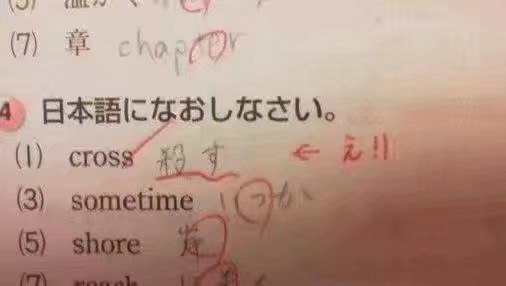 (7) 章 chapter
4 日本語になおしなさい。
(1) cross 殺す ← え!!
(3) sometime いつか
(5) shore